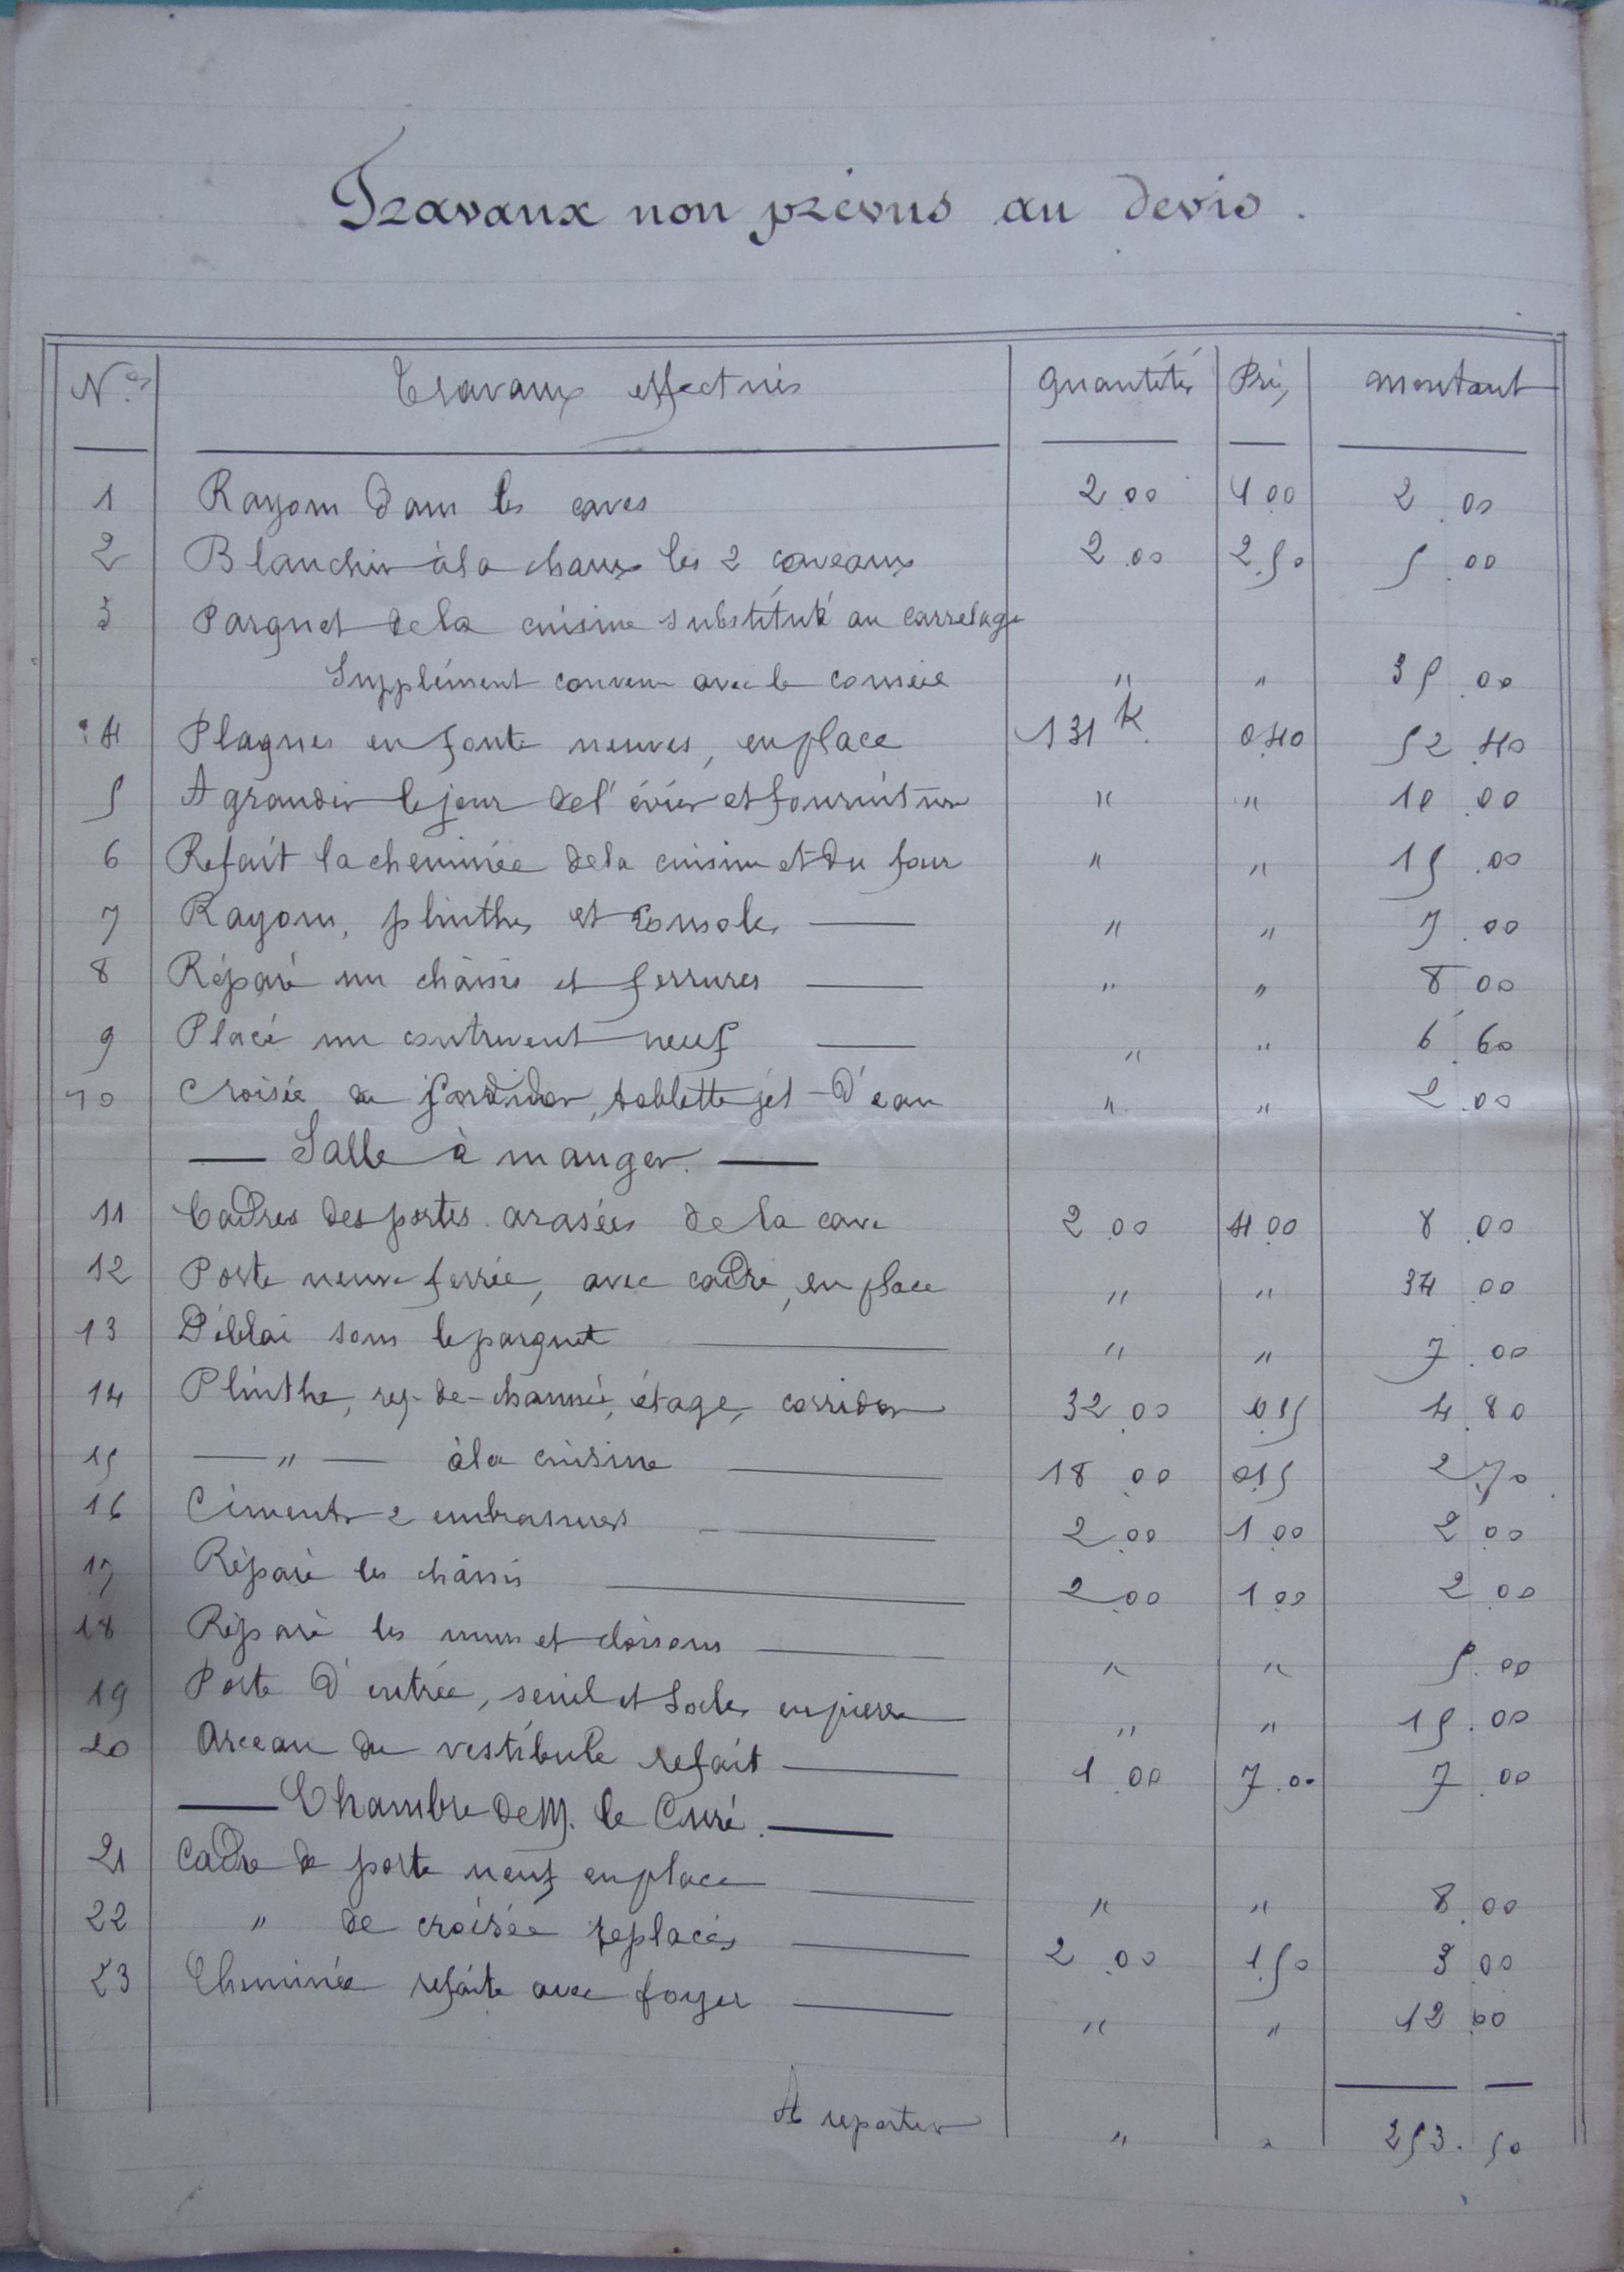 Travaux non prévus au devis.
Nos Travaux effectués Quantités Prix Montant
1 Rayons dans les caves 2.00 1.00 2.00
2 Blanchir à la chaux les 2 caveaux 2.00 2.50 5.00
3 Parquet de la cuisine substitué au carrelage
Supplément convenu avec le conseil " " 35.00
4 Plaques en fonte neuves, en place 131 k. 0.40 52.40
5 Agrandir le jour de l'évier et fourniture " " 10.00
6 Refait la cheminée de la cuisine et du four " " 15.00
7 Rayons, plinthes et consoles " " 7.00
8 Réparé un châssis et ferrures " " 8.00
9 Placé un contrevent neuf " " 6.60
10 Croisée du corridor, tablette jet-d'eau " " 2.00
Salle à manger.
11 Cadres des portes arasées de la cave 2.00 4.00 8.00
12 Porte neuve ferrée, avec cadre, en place " " 34.00
13 Déblai sous le parquet " " 7.00
14 Plinthe, rez-de-chaussée, étage, corridor 32.00 0.15 4.80
15 " à la cuisine 18.00 0.15 2.70
16 Cimenter 2 embrasures 2.00 1.00 2.00
17 Réparé les châssis 2.00 1.00 2.00
18 Réparé les murs et cloisons " " 5.00
19 Porte d'entrée, seuil et socles en pierre " " 15.00
20 Arceau du vestibule refait 1.00 7.00 7.00
Chambre de M. le Curé.
21 Cadre de porte neuf en place " " 8.00
22 " de croisée replacés 2.00 1.50 3.00
23 Cheminée refaite avec foyer " " 12.00
A reporter " " 253.50